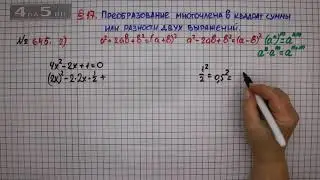 4 на 5
§ 17. Преобразование многочлена в квадрат суммы
или разности двух выражений
№ 645. 2) a²+2ab+b²=(a+b)² a²-2ab+b²=(a-b)² (aⁿ)ᵐ=aⁿᵐ
aⁿ·aᵐ=aⁿ⁺ᵐ
4x²-2x+1=0
(2x)²-2·2x·½+
½²=0,5²=